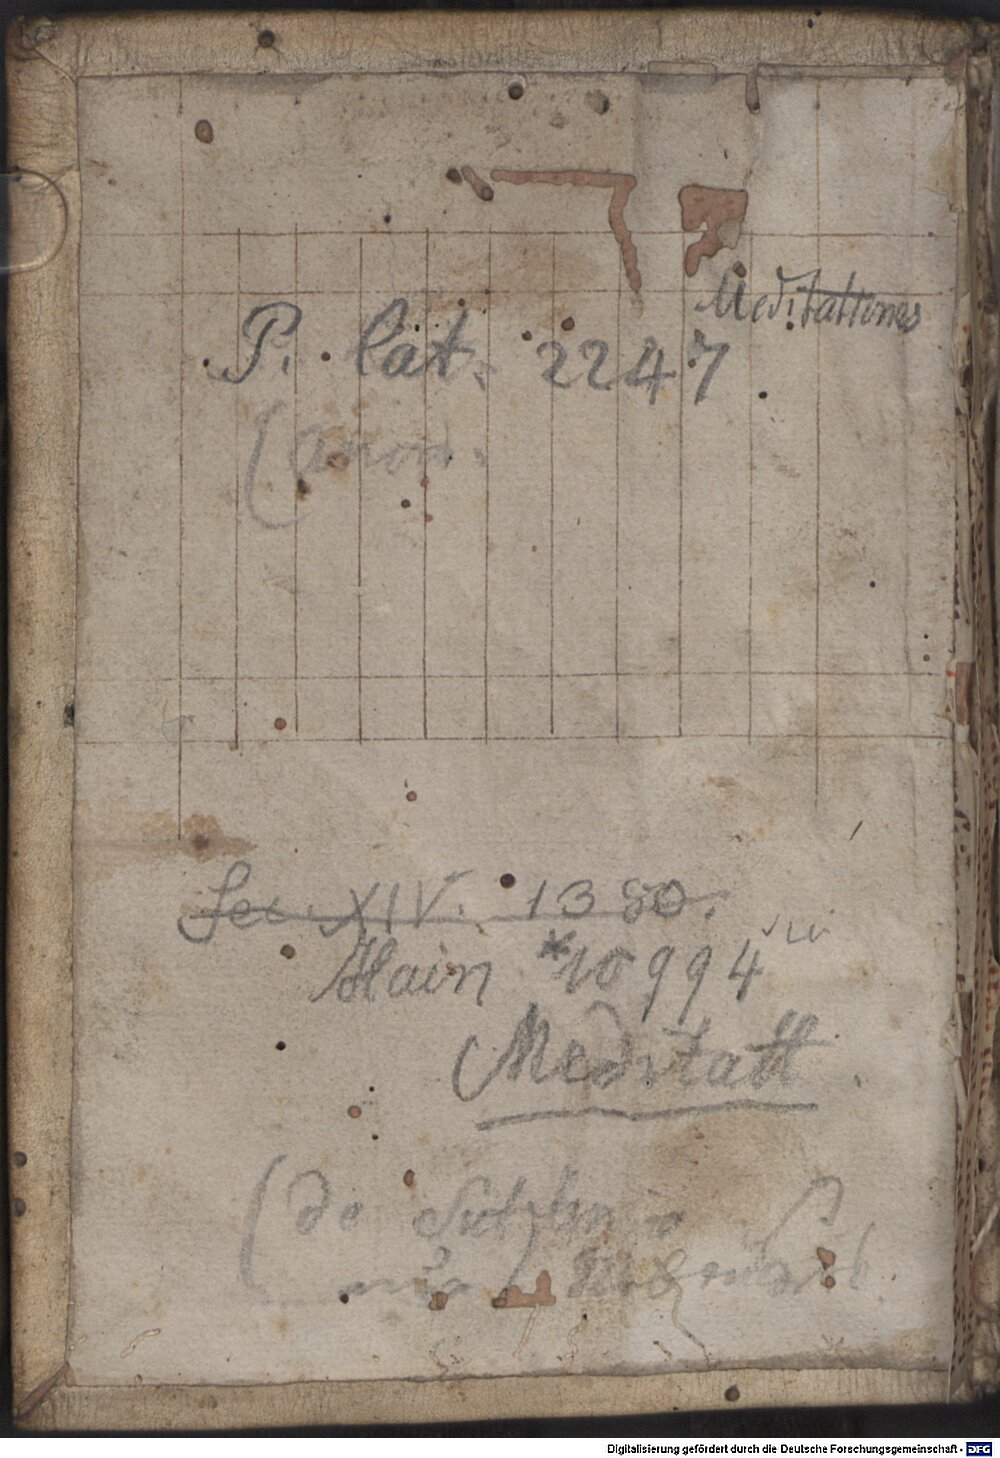 Meditationes
P. lat. 2247
(anon.
Sec. XIV. 1380.
Hain *10994
Meditatt
(de
Digitalisierung gefördert durch die Deutsche Forschungsgemeinschaft - DFG